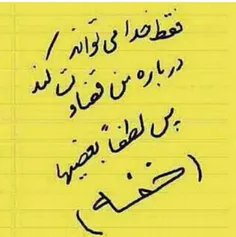 فقط خدا می تواند
درباره من قضاوت کند
پس لطفاً بعضیها
(خفه)